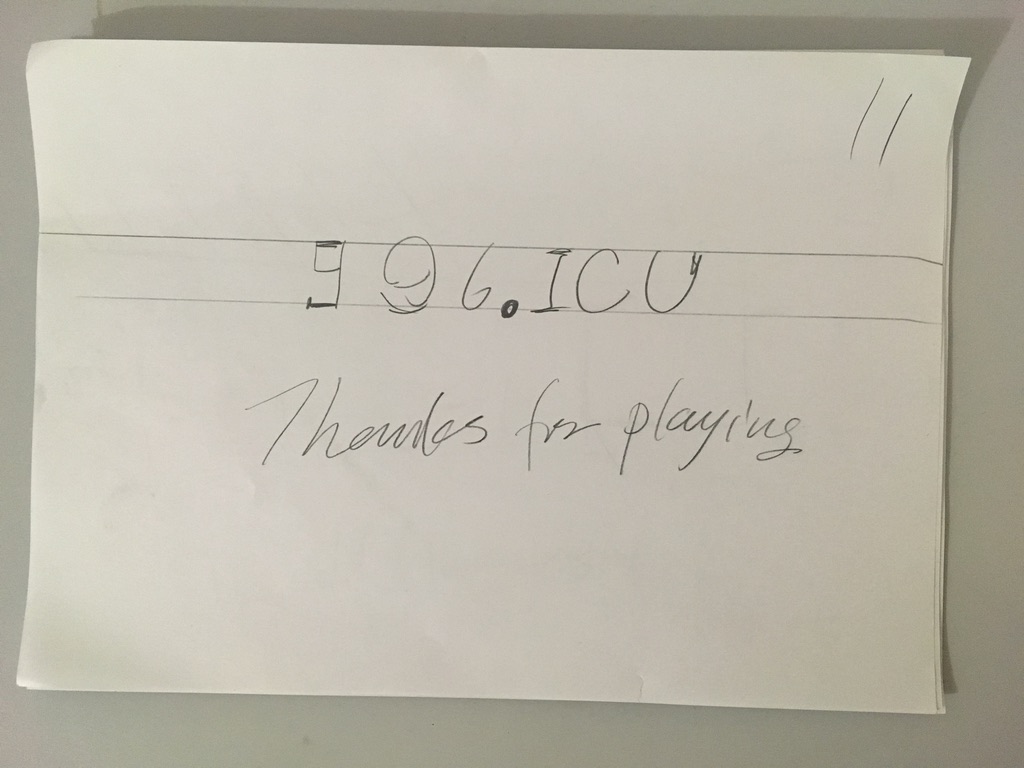 11
996.ICU
Thanks for playing